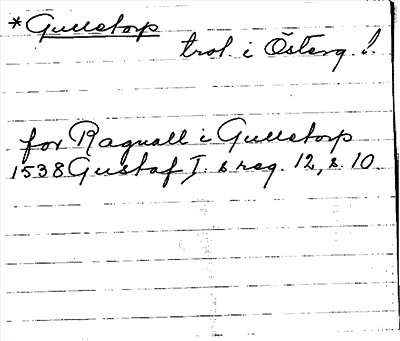 *Gulletorp
trol. i Österg. l.
for Ragnall i Gulletorp
1538 Gustaf I:s reg. 12, s. 10.